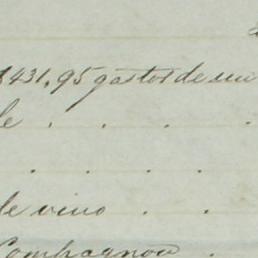 $431,95 gastos de su
le . . . .
. . . .
de vino . .
Compagnon .